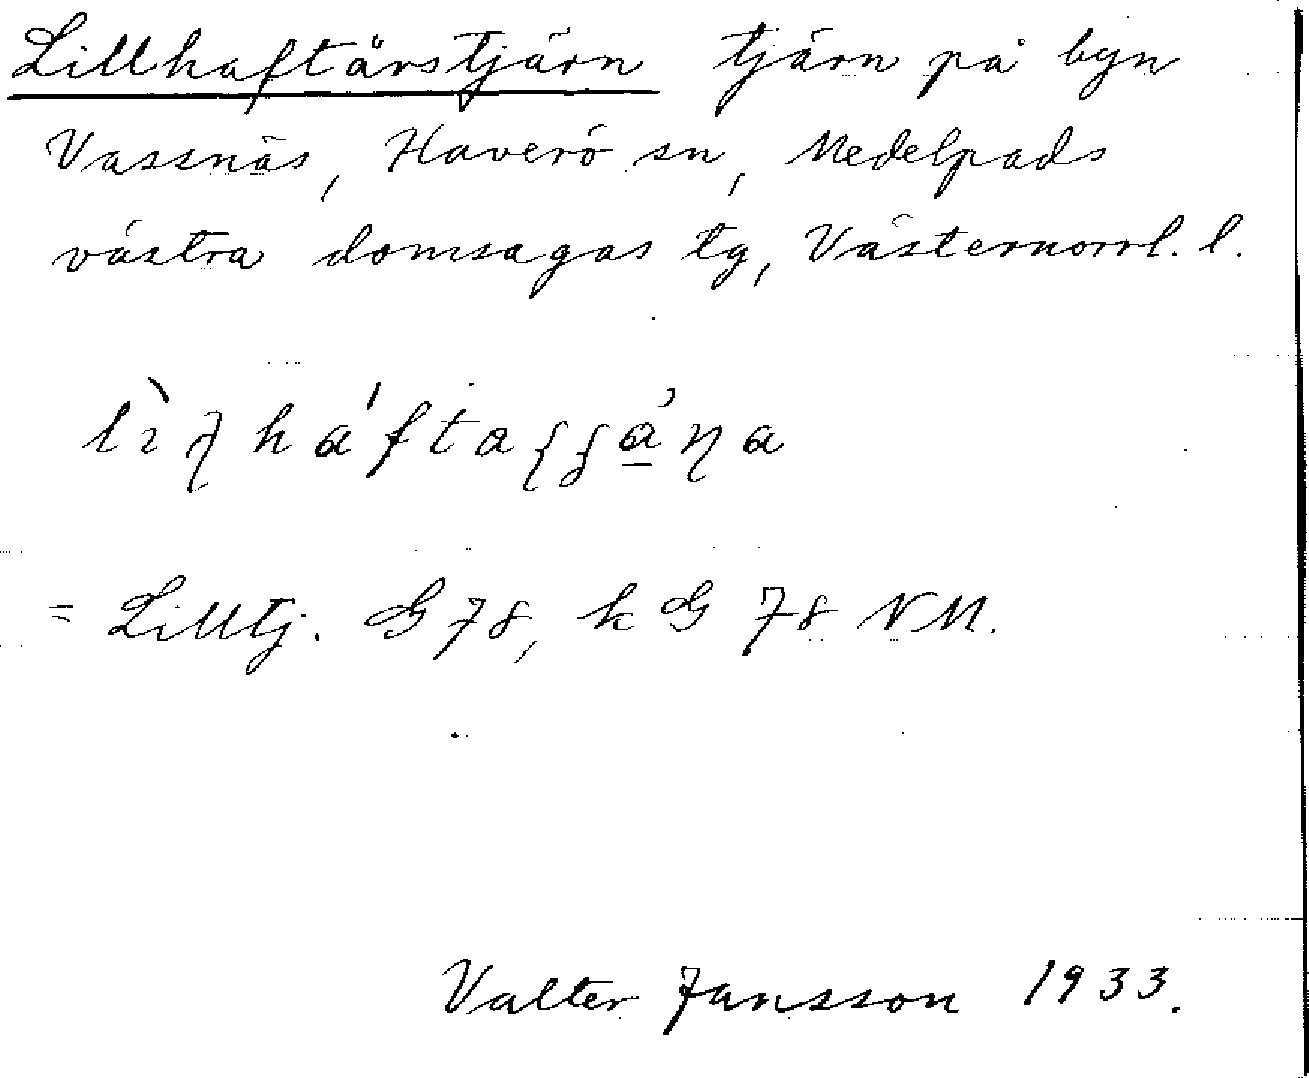 Lillhaftårstjärn tjärn på byn
Vassnäs, Haverö sn, Medelpads
västra domsagas tg, Västernorrl. l.
= Lilltj. G 78, k G 78 NM.
Valter Jansson 1933.